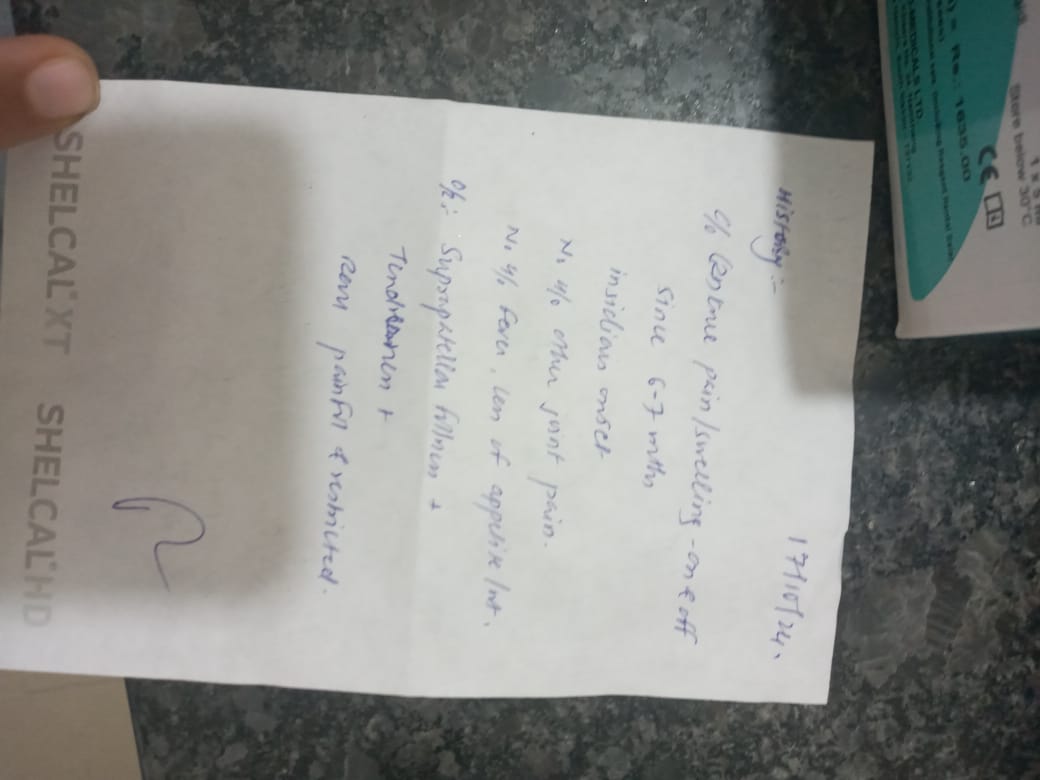 17/10/24.
History :-
c/o knee pain/swelling - on & off
since 6-7 mths
insidious onset
No h/o other joint pain.
No h/o fever, loss of appetite/wt.
O/E :- Suprapatellar fullness +
Tenderness +
ROM painful & restricted.
SHELCAL XT SHELCAL HD
= Rs.: 1635.00
MEDICALS LTD
CE
Store below 30°C